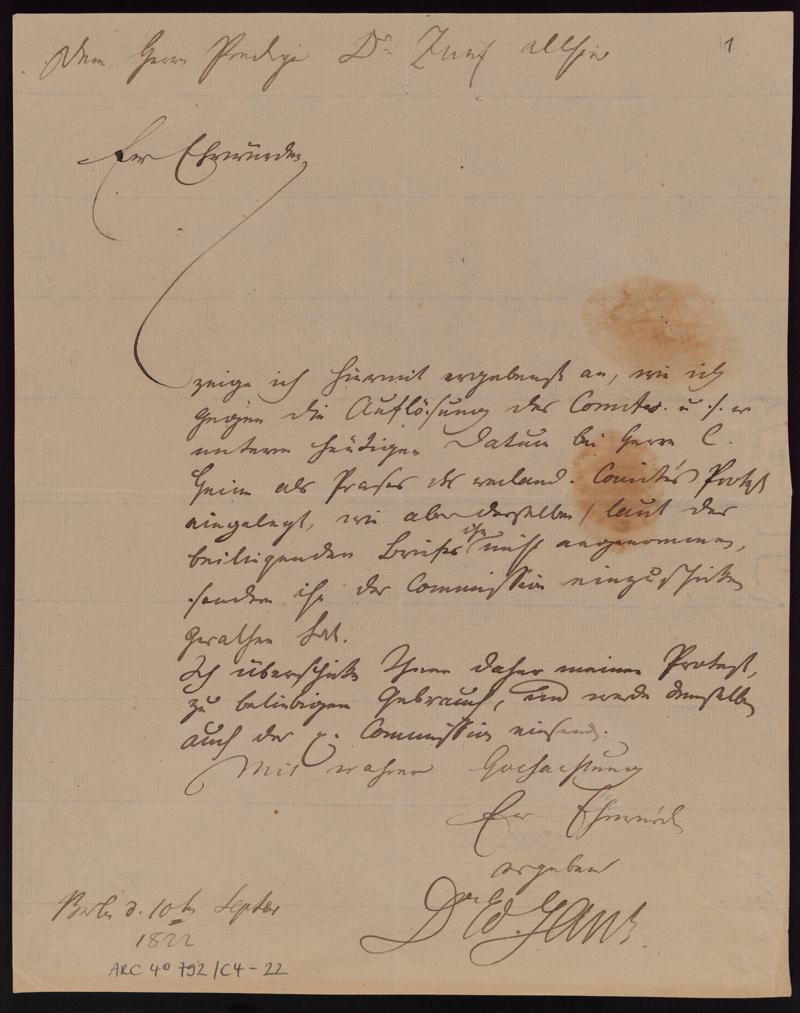 Dem Herrn Prediger Dr Zunz allhier
1
Ew Ehrwürden,
zeige ich hiermit ergebenst an, wie ich
gegen die Auflösung des Comités. u. s. w
unterm heutigen Datum bei Herrn C.
Heim als Präses des weiland. Comité's Protest
eingelegt, wie aber derselbe / laut des
beiliegenden Briefes ihn nicht angenommen,
sondern ihn der Commission einzuschicken
gerathen hat.
Ich überschicke Ihnen daher meinen Protest,
zu beliebigen Gebrauch, und werde denselben
auch der p. Commission einsend.
Mit wahrer Hochachtung
Ew Ehrwürd
ergebener
Dr Ed. Gans.
Berlin d. 10ten Septbr
1822
ARC 4° 792/C4-22